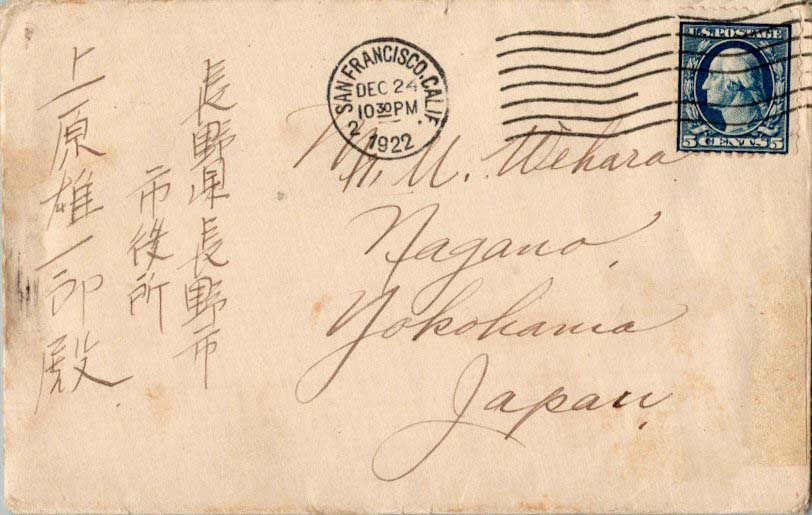 SAN FRANCISCO, CALIF.
2
DEC 24
10 30 PM
1922
U.S. POSTAGE
5 CENTS 5
Mr. U. Wehara
Nagano,
Yokohama
Japan.
長野県長野市
市役所
上原雄一郎殿